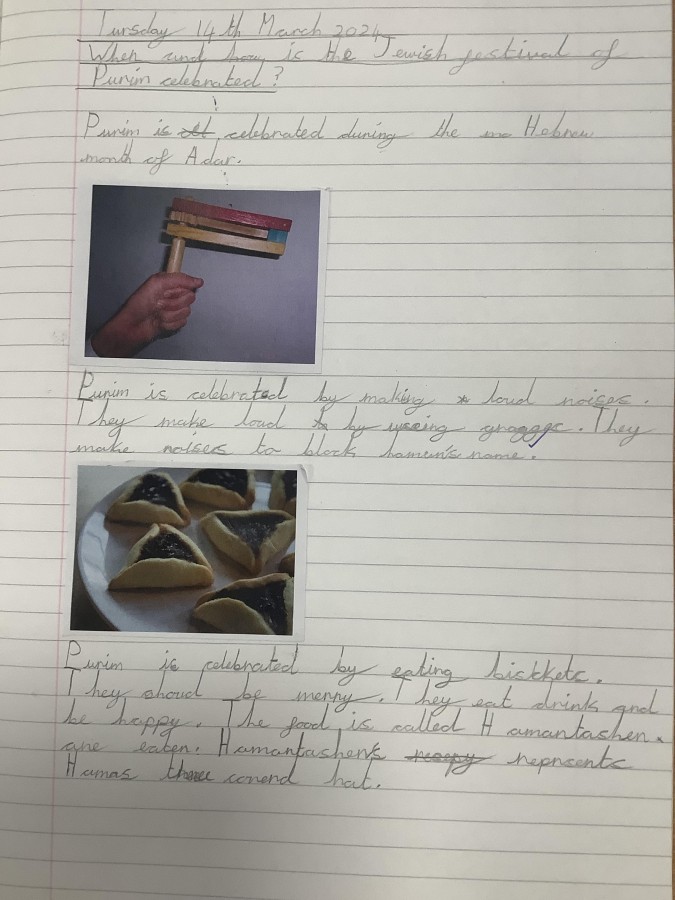 Tursday 14th March 2024
When and how is the Jewish festival of
Purim celebrated?
Purim is celebrated during the mo Hebrew
month of Adar.
Purim is celebrated by making loud noises.
They make loud by useing They
make noises to block hamen's name.
Purim is celebrated by eating biskkets.
They shoud be merry. They eat drink and
be happy. The food is called Hamantashen.
are eaten. Hamantashens reprsents
Hamas conerd hat.